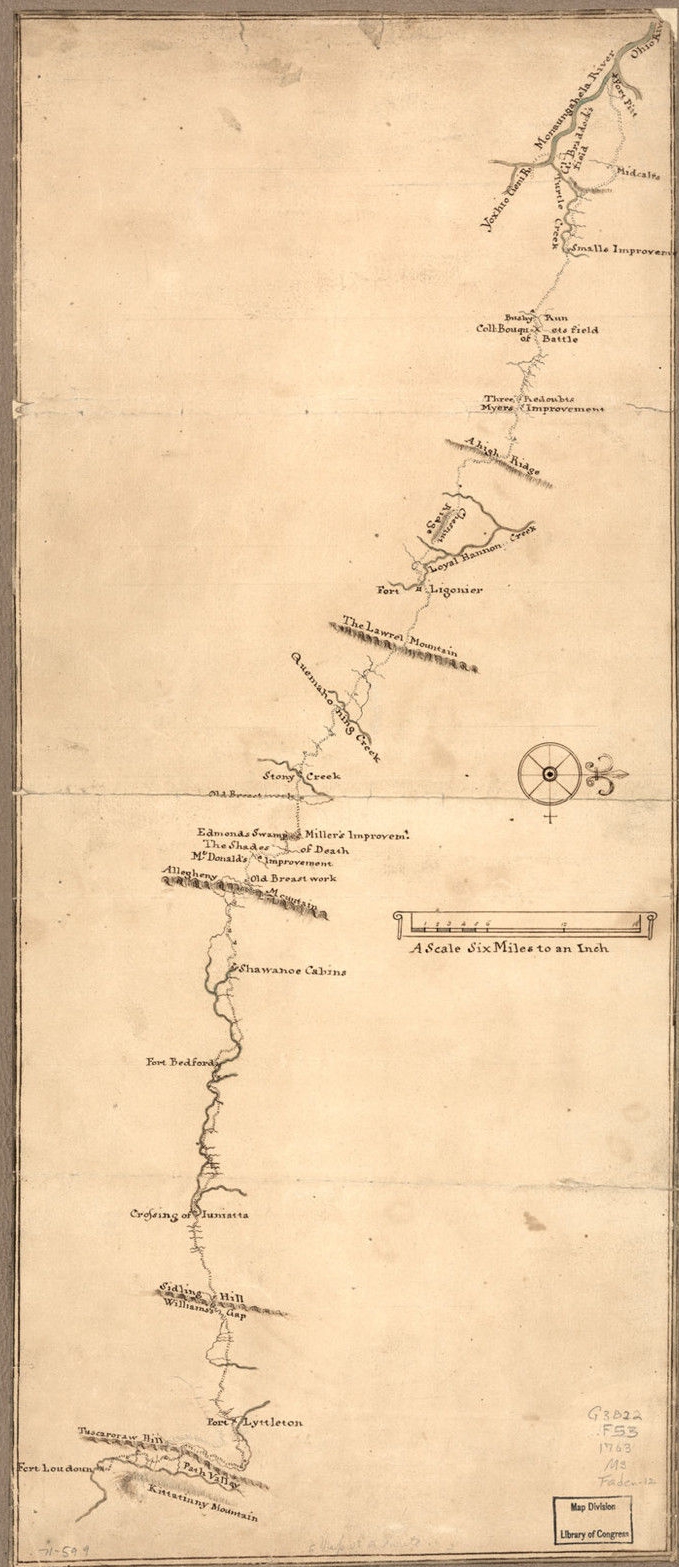 Ohio Riv
Monaungahela River
Fort Pitt
Gl. Braddock's
field
Midcalfs
Yoxhio Geni R.
Turtle
Creek
Smalls Improvem
Bushy Run
Coll: Bouquets field
of Battle
Three Redoubts
Myers Improvement
A high Ridge
Chesnut
Ridge
Loyal Hannon Creek
Fort Ligonier
The Lawrel Mountain
Quemahoning Creek
Stony Creek
Old Breastwork
Edmonds Swamp Miller's Improvemt
The Shades of Death
McDonald's Improvement
Allegheny Mountain
Old Breast work
1 2 3 4 5 6 12 18
A Scale Six Miles to an Inch
Shawanoe Cabins
Fort Bedford
Crossing of Iuniatta
Sidling Hill
Williams's Gap
Fort Lyttleton
Tuscaroraw Hill
Fort Loudoun
Path Valley
Kittatinny Mountain
G3822
.F53
1763
.M3
Faden 12
Map Division
Library of Congress
71-599